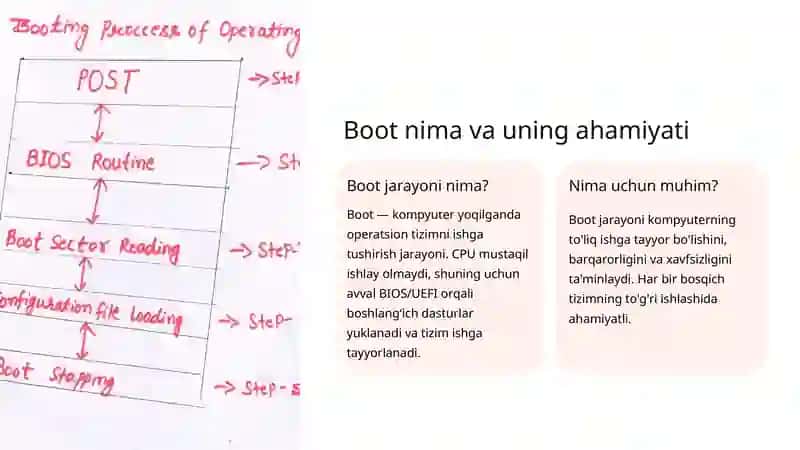 Booting Proccess of Operating
POST
BIOS Routine
Boot Sector Reading
Configuration file loading
Boot Stopping
Boot nima va uning ahamiyati
Boot jarayoni nima?
Boot — kompyuter yoqilganda
operatsion tizimni ishga
tushirish jarayoni. CPU mustaqil
ishlay olmaydi, shuning uchun
avval BIOS/UEFI orqali
boshlang'ich dasturlar
yuklanadi va tizim ishga
tayyorlanadi.
Nima uchun muhim?
Boot jarayoni kompyuterning
to'liq ishga tayyor bo'lishini,
barqarorligini va xavfsizligini
ta'minlaydi. Har bir bosqich
tizimning to'g'ri ishlashida
ahamiyatli.